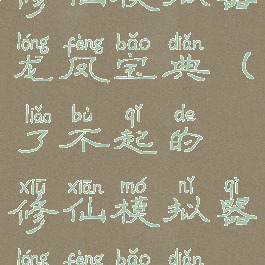 修仙模拟器
lóng fèng bǎo diǎn
龙凤宝典（
liǎo bù qǐ de
了不起的
xiū xiān mó nǐ qì
修仙模拟器
lóng fèng bǎo diǎn